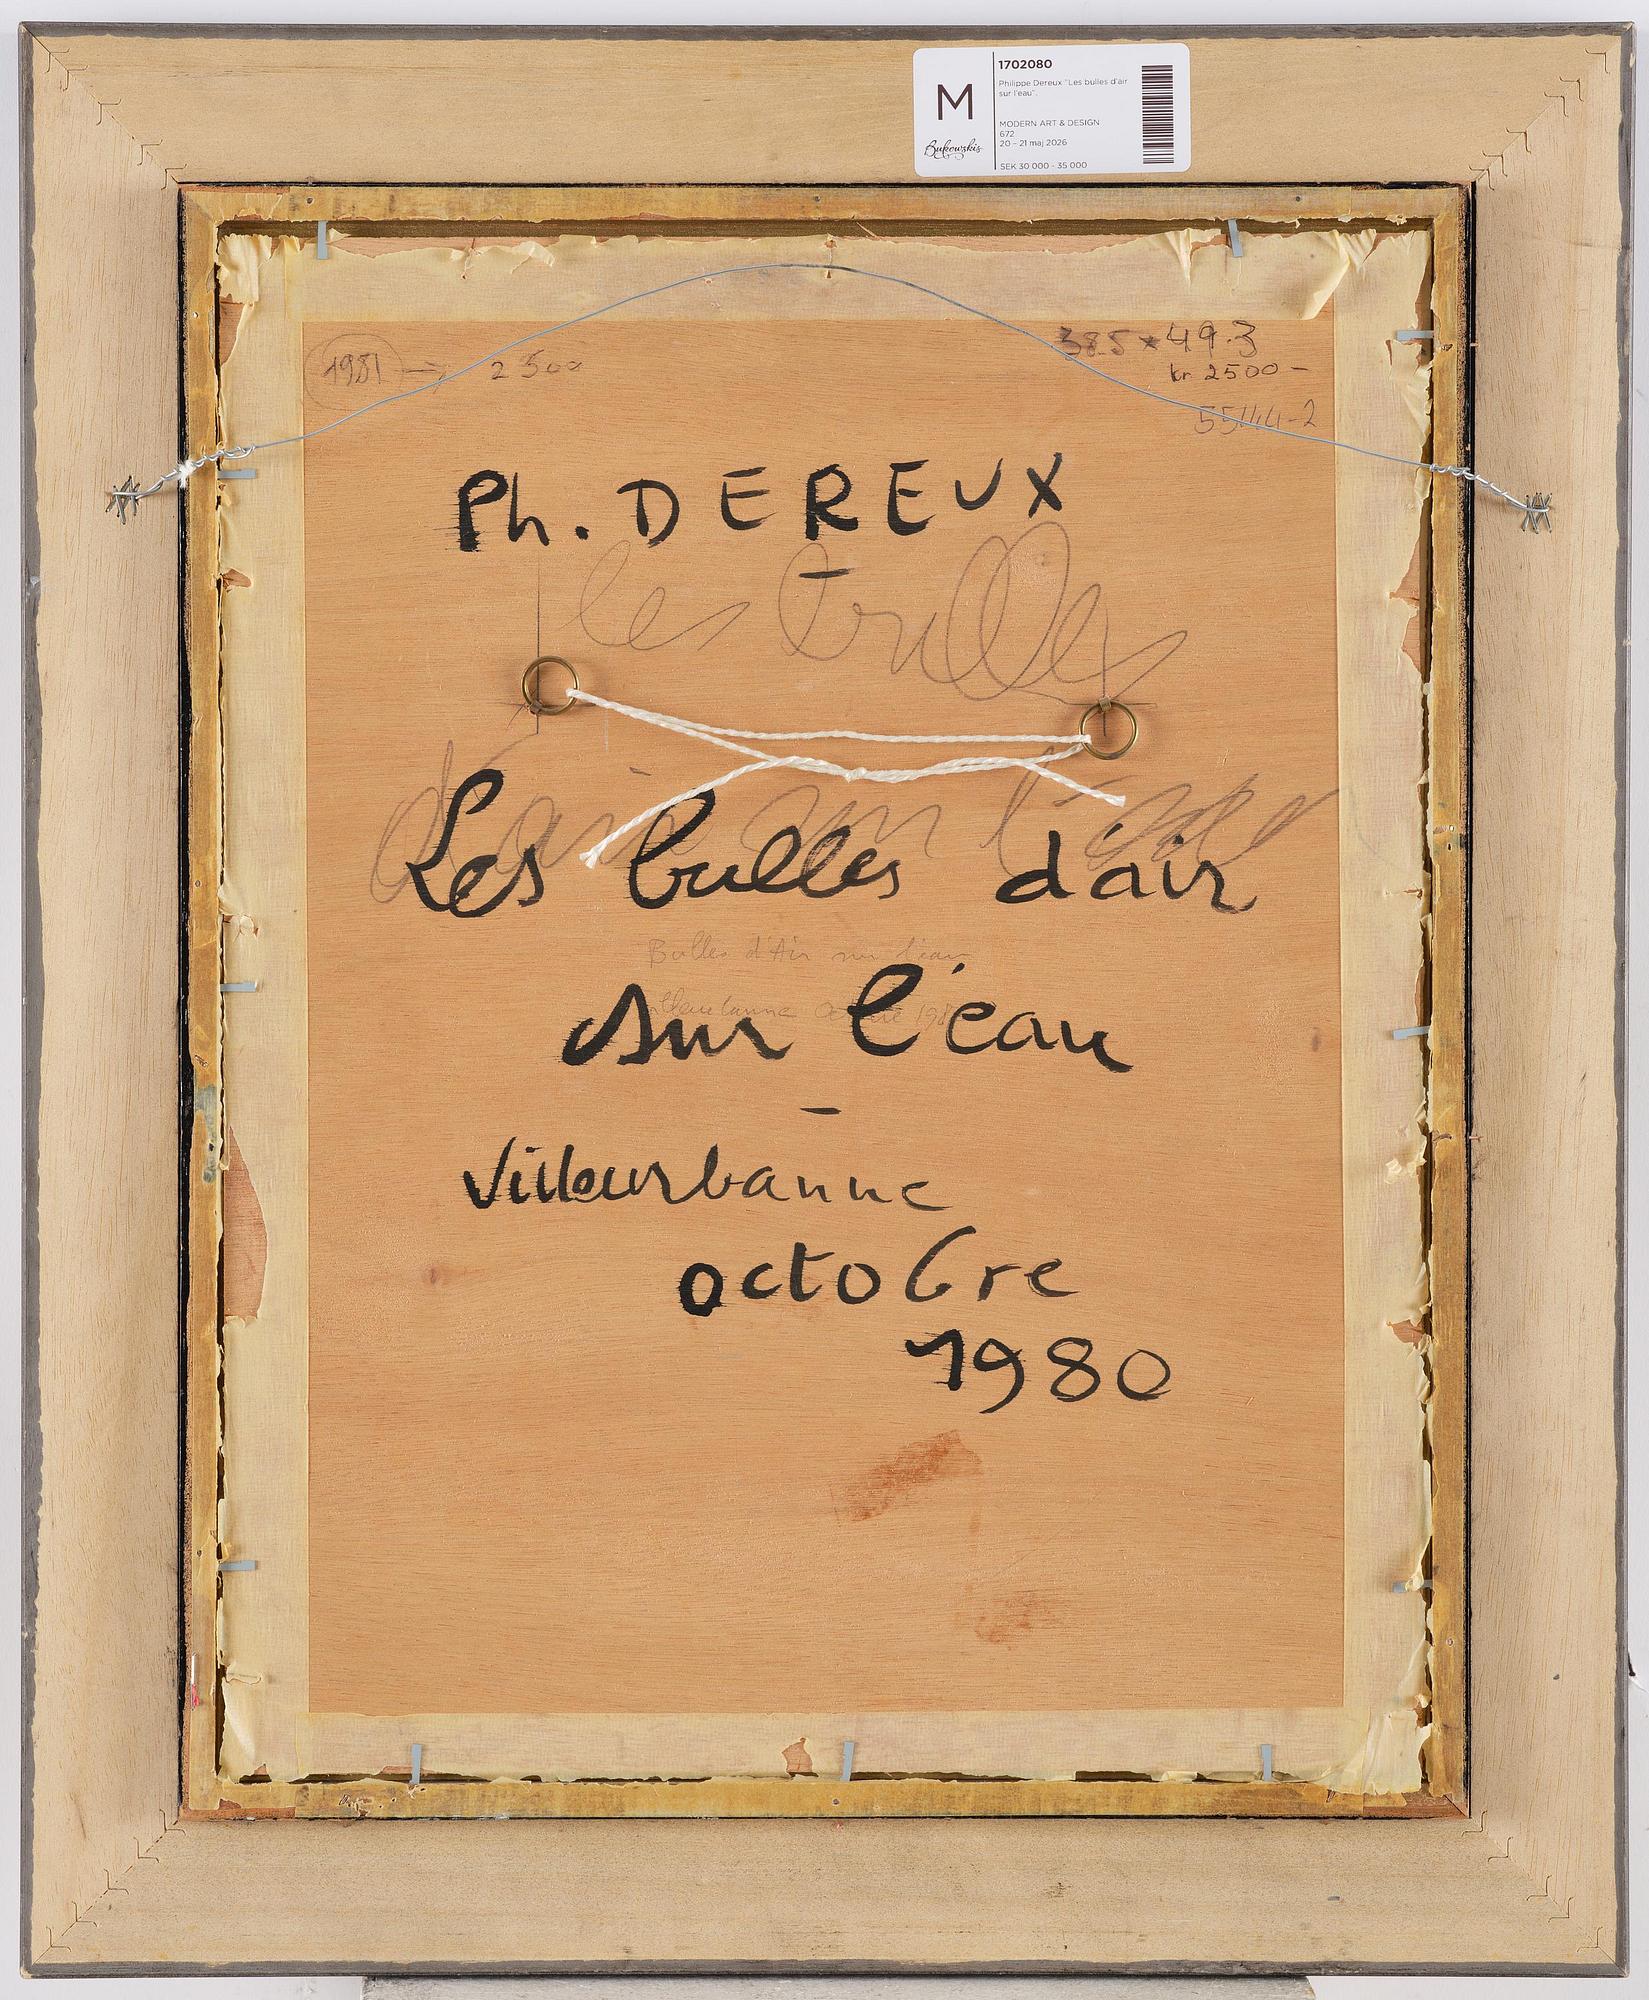 M
Bukowskis
1702080
Philippe Dereux "Les bulles d'air
sur l'eau".
MODERN ART & DESIGN
672
20 - 21 maj 2026
SEK 30 000 - 35 000
1981 → 2500
38.5 × 49.3
kr 2500 -
Ph. DEREUX
les bulles
d'air sur l'eau
Les bulles d'air
Bulles d'Air sur l'eau
sur l'éau
Villeurbanne
octobre
1980